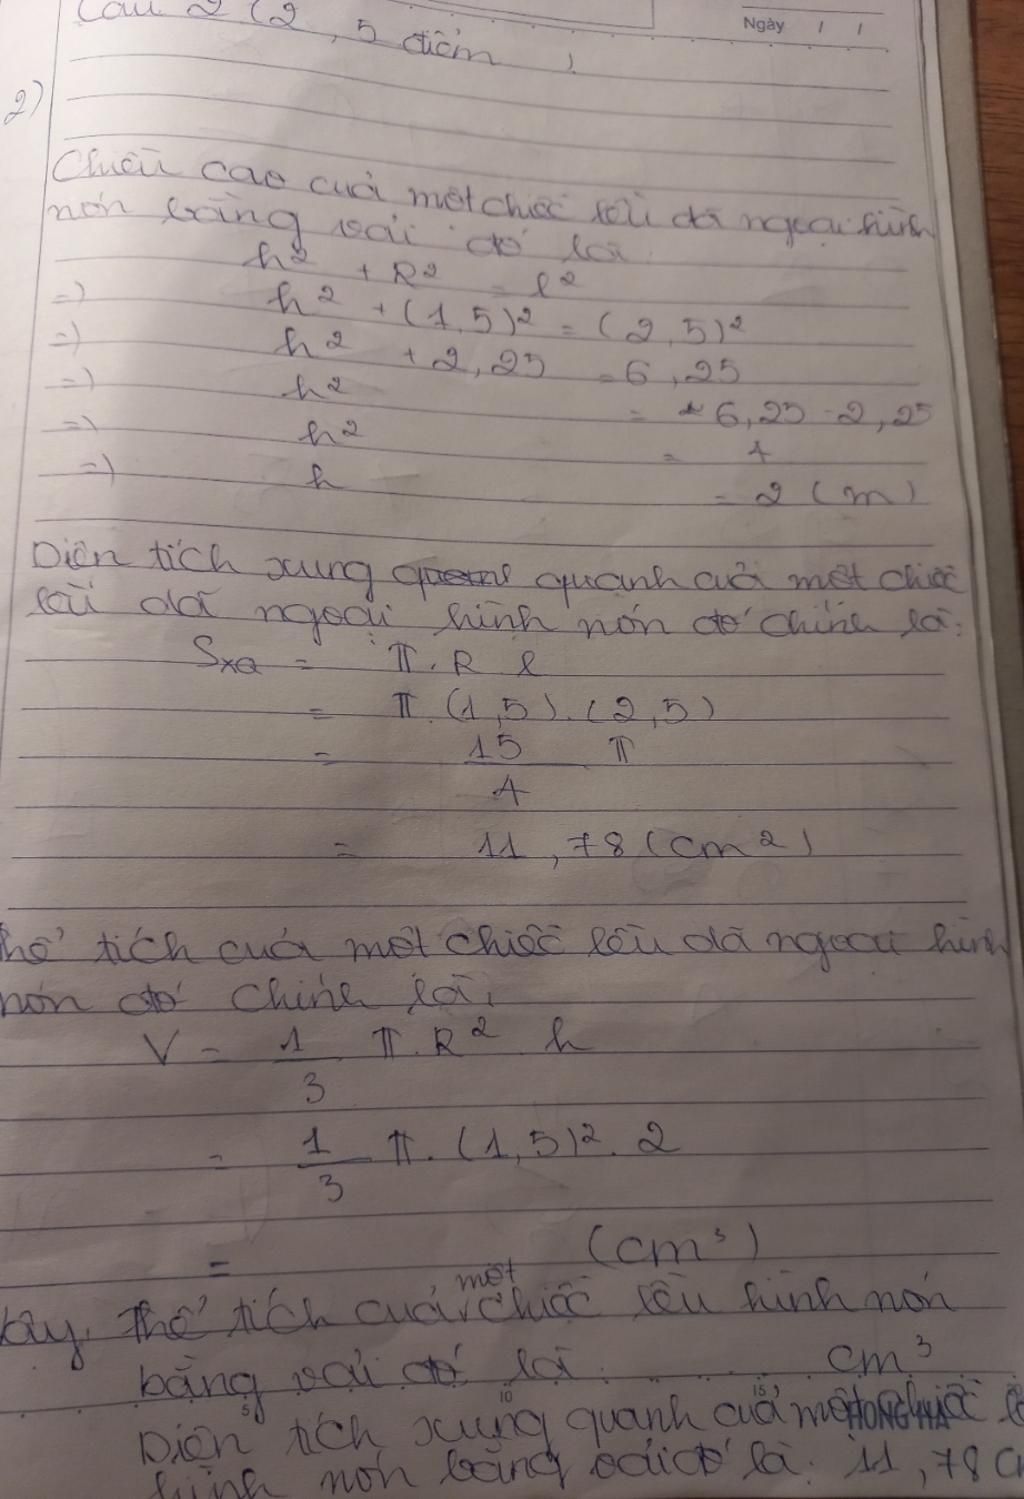 Câu 2 (2,5 điểm)
Ngày / /
2)
Chiều cao cuả một chiếc lều dã ngoại hình
nón bằng vải đó là
h² + R² = l²
=) h² + (1,5)² = (2,5)²
=) h² + 2,25 = 6,25
=) h² = 6,25 - 2,25
=) h² = 4
=) h = 2 (m)
Diện tích xung quanh cuả một chiếc
lều dã ngoại hình nón đó chính là:
Sxq = π. R l
= π. (1,5). (2,5)
= 15/4 π
= 11,78 (cm²)
hể tích cuả một chiếc lều dã ngoại hình
nón đó chính là:
V = 1/3 π. R² h
= 1/3 π. (1,5)². 2
= (cm³)
Vậy. Thể tích cuả một chiếc lều hình nón
bằng vải đó là ... cm³
5 10 15
Diện tích xung quanh cuả một HONG HA chiếc
hình nón bằng vải đó là: 11,78